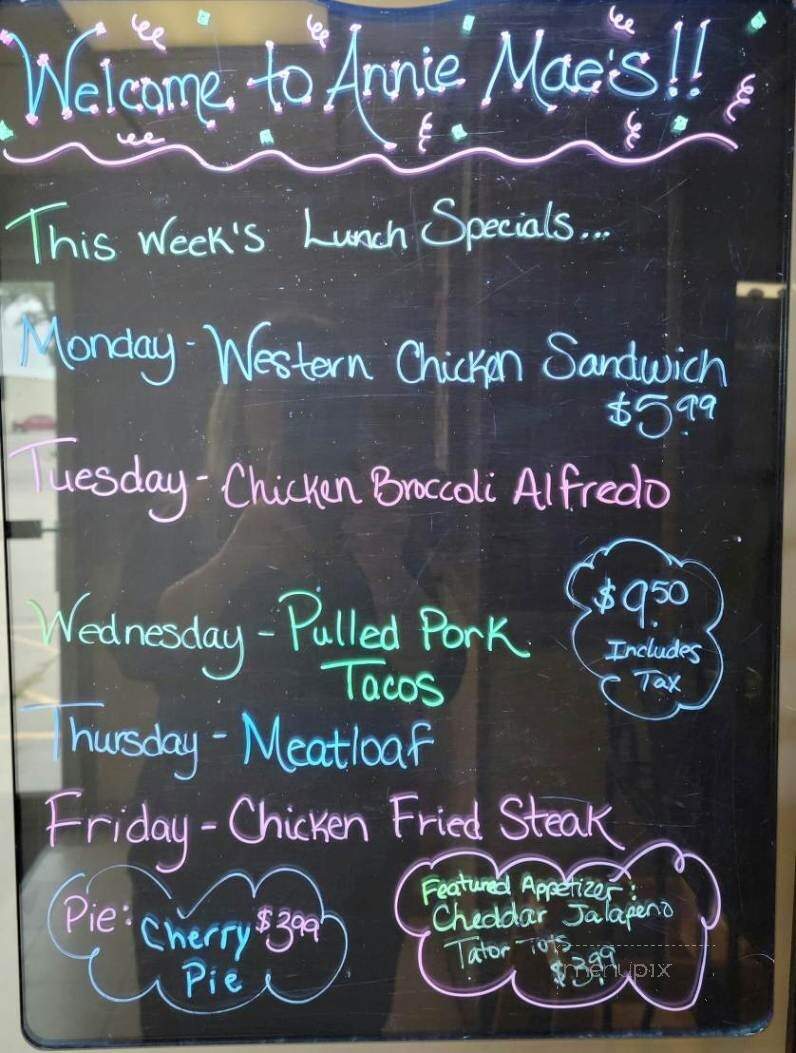 Welcome to Annie Mae's!!
This Week's Lunch Specials...
Monday - Western Chicken Sandwich
$5.99
Tuesday - Chicken Broccoli Alfredo
$9.50
Includes
Tax
Wednesday - Pulled Pork
Tacos
Thursday - Meatloaf
Friday - Chicken Fried Steak
Pie: Cherry $3.99
Pie
Featured Appetizer:
Cheddar Jalapeno
Tator Tots
$3.99
menupix